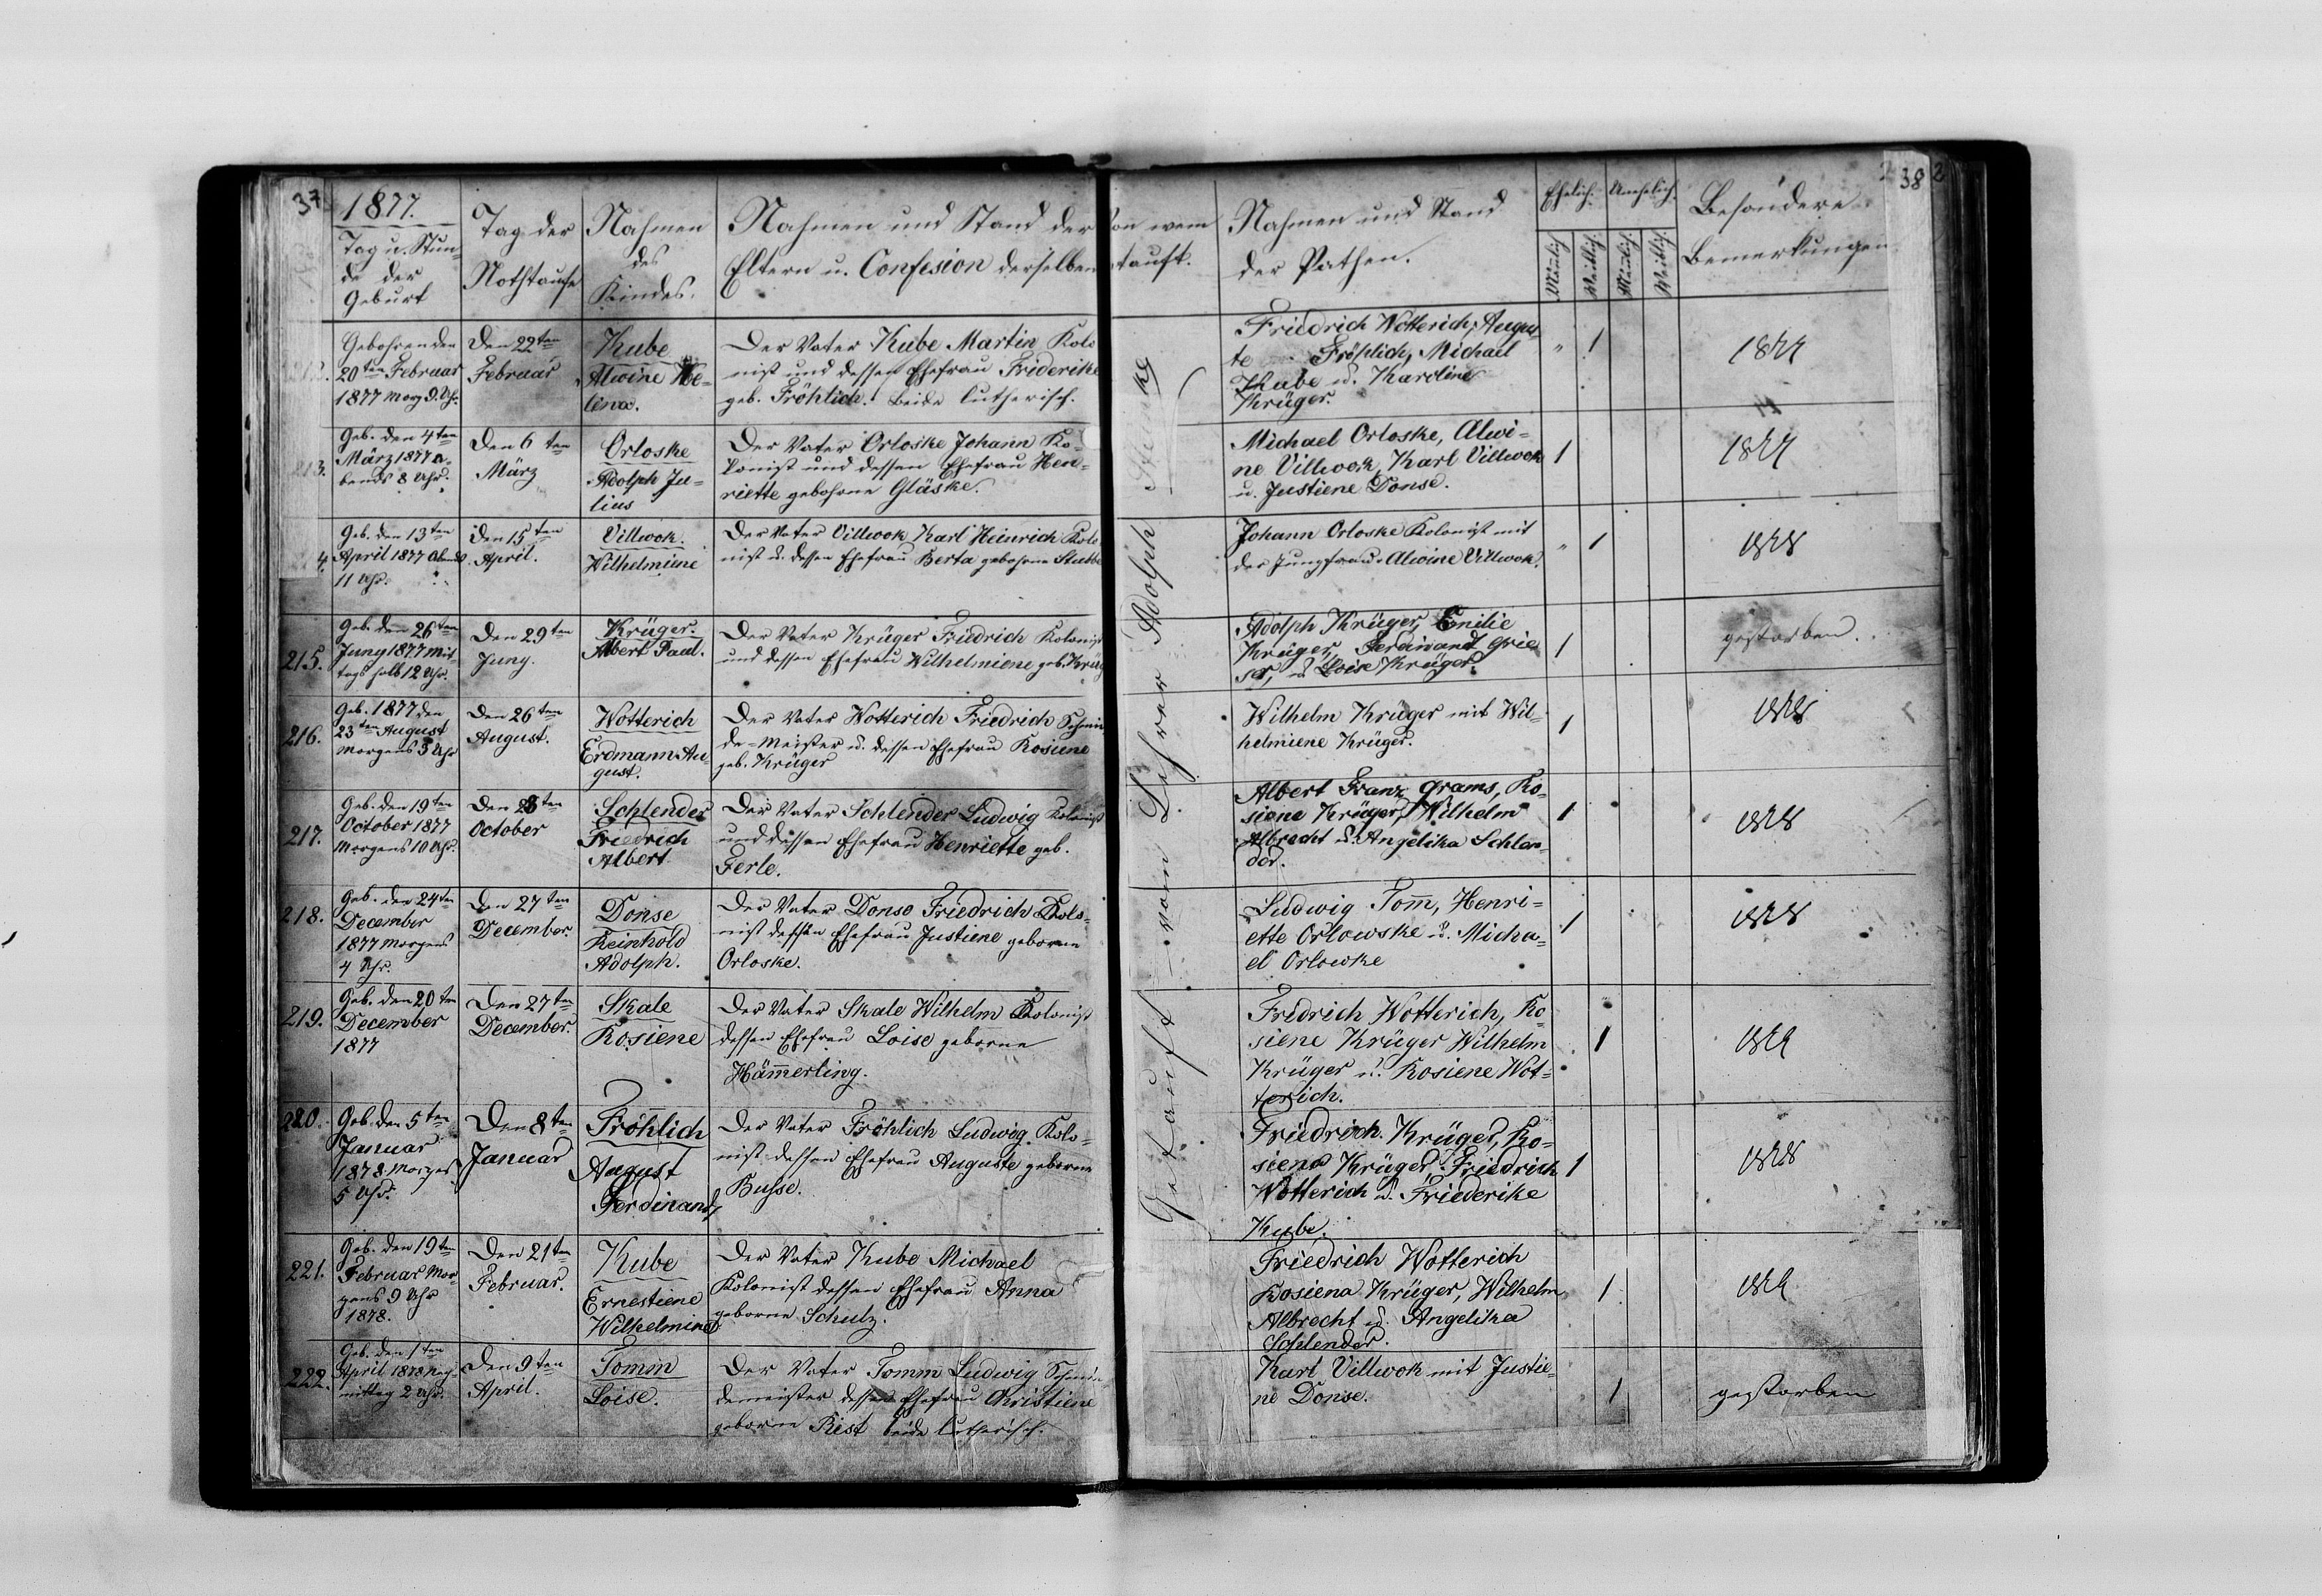 37
1877.
Tag u. Stun-
de der
Geburt
Tag der
Nothtaufe
Nahmen
des
Kindes.
Nahmen und Stand der
Eltern u. Confesion derselben
Gebohren den
20ten Februar
1877 Morg 9. Uhr.
Den 22ten
Februar
Kube
Alwine He-
lena.
Der Vater Kube Martin Kolo
nist und dessen Ehefrau Friderike
geb. Fröhlich. Beide lutherisch.
213.
Geb. den 4ten
März 1877 A-
bends 8 Uhr.
Den 6ten
März
Orloske
Adolph Ju-
lius
Der Vater Orloske Johann Ko-
lonist und dessen Ehefrau Hen-
riette gebohrne Gläske.
4.
Geb. den 13ten
April 1877 Abends
11 Uhr.
Den 15ten
April.
Villwok.
Wilhelmiene
Der Vater Villwok Karl Heinrich Kolo
nist u. dessen Ehefrau Berta gebohrne Stubbe
215.
Geb. den 26ten
Juny 1877 Mit-
tags halb 12 Uhr.
Den 29ten
Juny.
Krüger.
Albert Paul.
Der Vater Krüger Friedrich Kolonist
und dessen Ehefrau Wilhelmiene geb. Krüg
216.
Geb. 1877 den
23ten August
Morgens 3 Uhr
Den 26ten
August.
Wotterich
Erdmann Au-
gust.
Der Vater Wotterich Friedrich Schmie
de-Meister u. dessen Ehefrau Rosiene
geb. Krüger
217.
Geb. den 19ten
October 1877
Morgens 10 Uhr.
Den 28ten
October
Schlender
Friedrich
Albert
Der Vater Schlender Ludwig Kolonist
und dessen Ehefrau Henriette geb.
Ferle.
218.
Geb. den 24ten
December
1877 Morgens
4 Uhr.
Den 27ten
December.
Donse
Reinhold
Adolph.
Der Vater Donse Friedrich Kolo-
nist dessen Ehefrau Justiene geborne
Orloske.
219.
Geb. den 20ten
December
1877
Den 27ten
December.
Skale
Rosiene
Der Vater Skale Wilhelm Kolonist
dessen Ehefrau Loise geborne
Häm̄erling.
220.
Geb. den 5ten
Januar
1878 Morgens
5 Uhr.
Den 8ten
Januar
Fröhlich
August
Ferdinand
Der Vater Fröhlich Ludwig Kolo-
nist dessen Ehefrau Auguste geborne
Busse.
221.
Geb. den 19ten
Februar Mor-
gens 9 Uhr
1878.
Den 21ten
Februar.
Kube
Ernestiene
Wilhelmine
Der Vater Kube Michael
Kolonist dessen Ehefrau Anna
geborne Schulz.
222.
Geb. den 1ten
April 1878 Nach-
mittag 2 Uhr.
Den 9ten
April.
Tomm
Loise.
Der Vater Tomm Ludwig Schmie
demeister dessen Ehefrau Christiene
geborne Rist beide lutherisch.
38
von wem
tauft.
Nahmen und Stand
der Pathen.
Ehelich.
Unehelich.
Mänlich
Weiblich.
Mänlich.
Weiblich.
Besondere
Bemerkungen
Getauft vom Lehrer Adolph
Friedrich Wotterich, Augus
te Fröhlich, Michael
Kube u. Karoline
Krüger.
" 1
1877
Michael Orloske, Alwi-
ne Villwock, Karl Villwok
u. Justiene Donse.
1
1877
Johann Orloske Kolonist mit
der Jungfrau Alwine Villwok.
" 1
1878
Adolph Krüger, Emilie
Krüger, Ferdinand Grie
ser, u. Loise Krüger.
1
gestorben.
Wilhelm Krüger mit Wil-
helmiene Krüger.
1
1878
Albert Franz Grams, Ro-
siene Krüger, Wilhelm
Albrecht u. Angelika Schlen-
der.
1
1878
Ludwig Tom̄, Henri-
ette Orlowske u. Micha-
el Orlowke
1
1878
Fridrich Wotterich, Ro-
siene Krüger Wilhelm
Krüger u. Rosiene Wot-
terich.
1
Friedrich Krüger, Ro-
siena Krüger, Friedrich
Wotterich u. Friederike
Kube.
1
1878
Friedrich Wotterich
Rosiena Krüger, Wilhelm
Albrecht u. Angelika
Schlender.
1
Karl Villwok mit Justie-
ne Donse.
1
gestorben